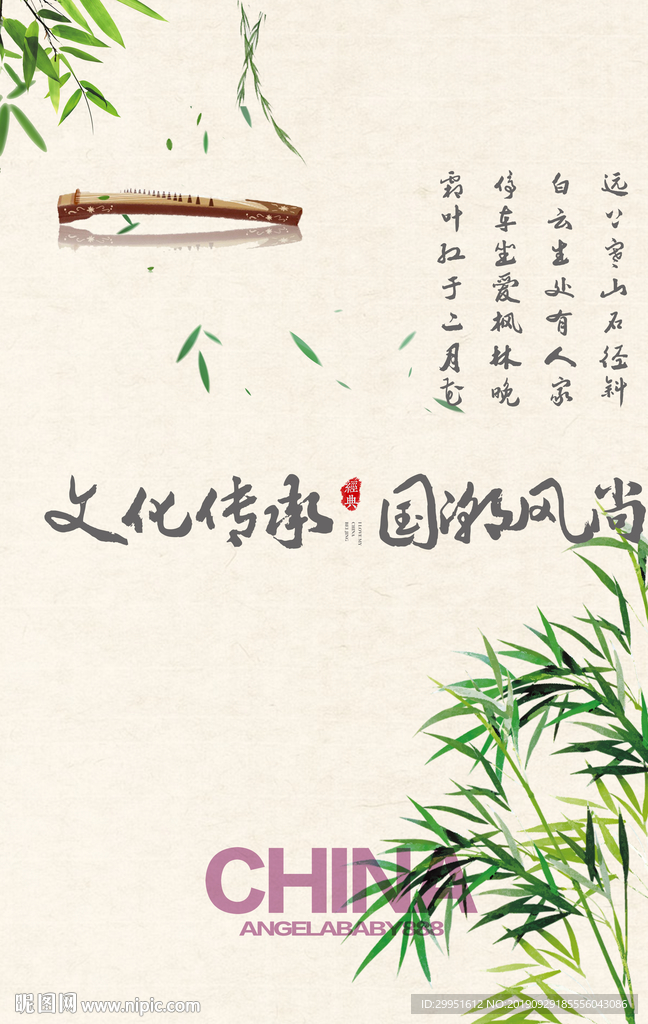 远上寒山石径斜
白云生处有人家
停车坐爱枫林晚
霜叶红于二月花
文化传承
經典
I LOVE MY
CHINA
BEIJING
国潮风尚
CHINA
ANGELABABY888
昵图网 www.nipic.com
ID:29951612 NO:20190929185556043086